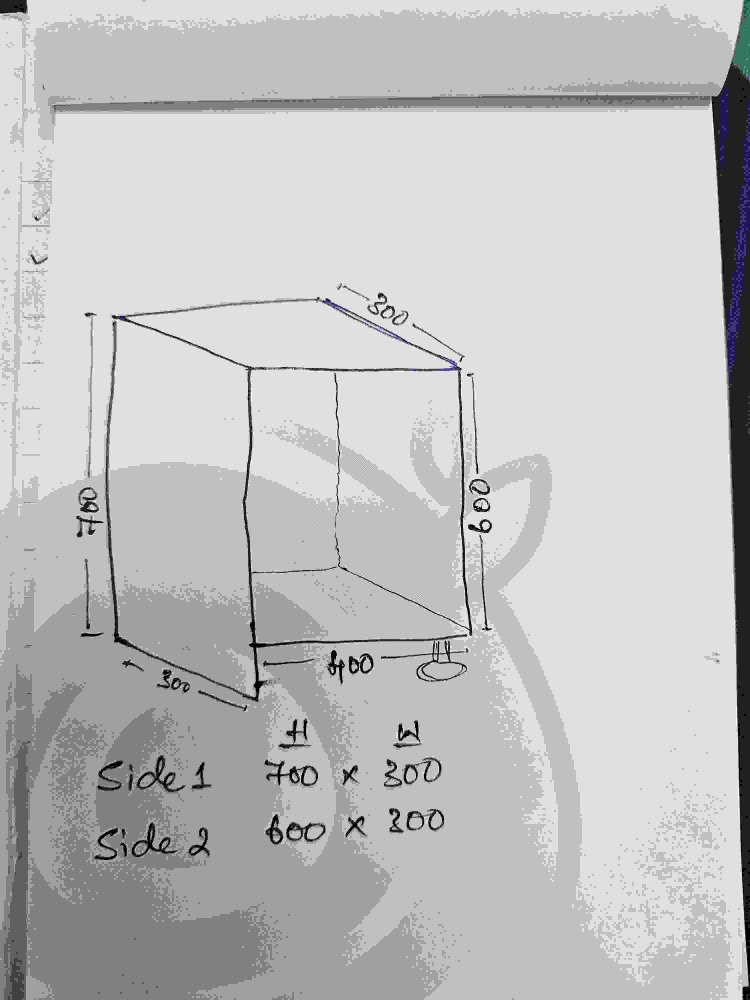 300
700
600
400
300
H W
Side 1 700 x 300
Side 2 600 x 300